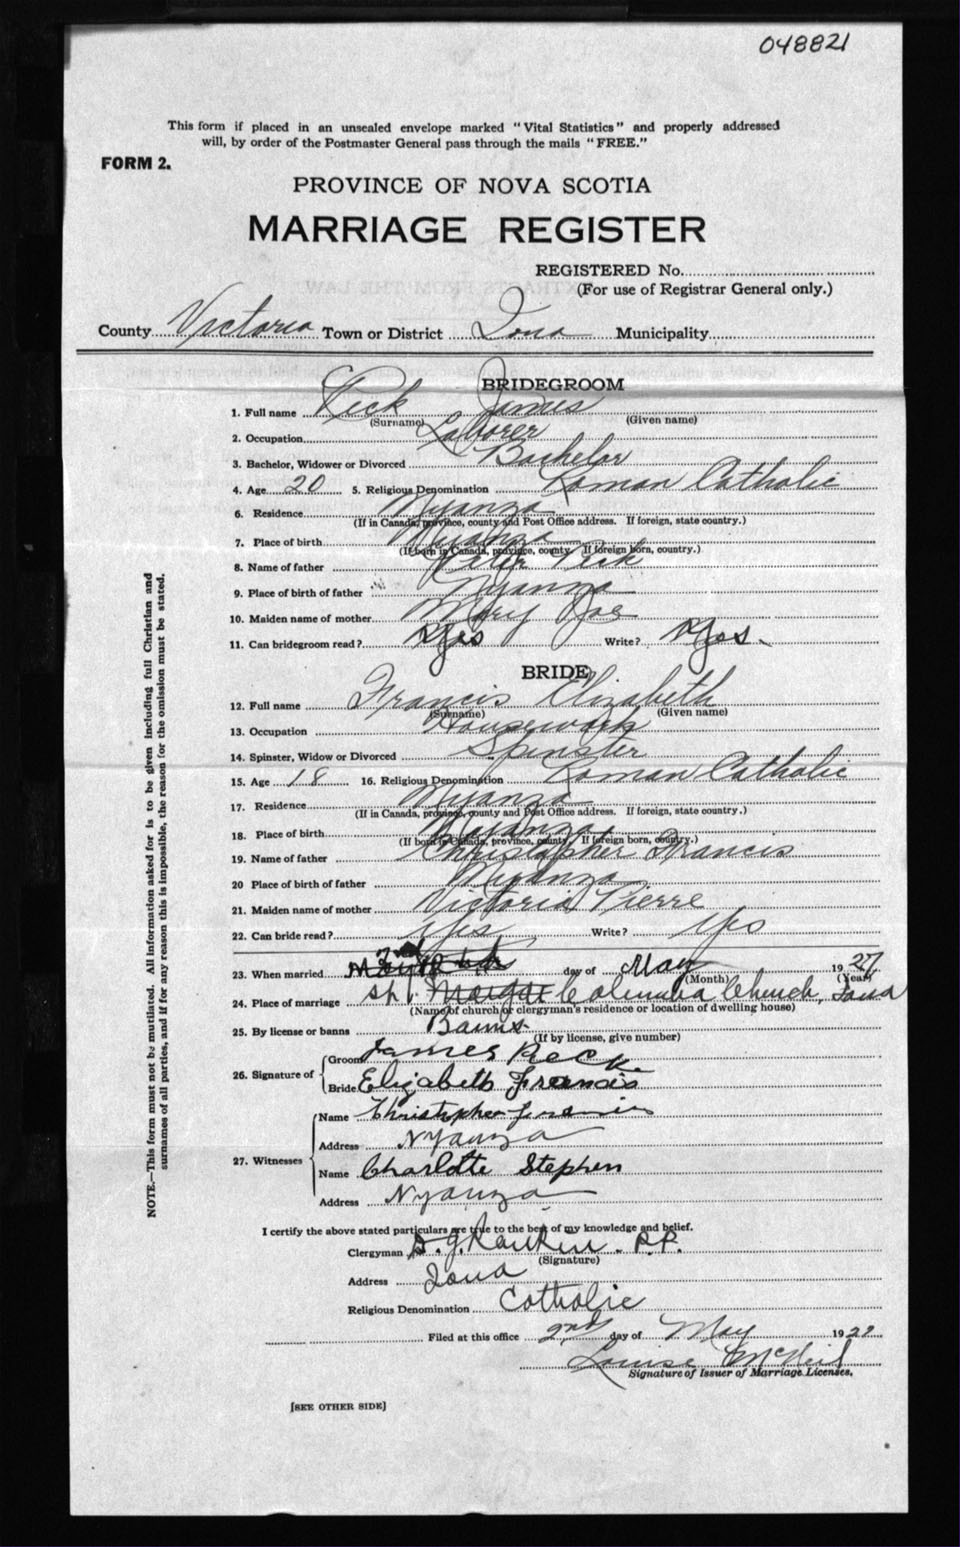 048821
This form if placed in an unsealed envelope marked "Vital Statistics" and properly addressed
will, by order of the Postmaster General pass through the mails "FREE."
FORM 2.
PROVINCE OF NOVA SCOTIA
MARRIAGE REGISTER
REGISTERED No.
(For use of Registrar General only.)
County Victoria Town or District Iona Municipality
BRIDEGROOM
1. Full name Peck James
(Surname) (Given name)
2. Occupation Laborer
3. Bachelor, Widower or Divorced Bachelor
4. Age 20 5. Religious Denomination Roman Catholic
6. Residence Nyanza
(If in Canada, province, county and Post Office address. If foreign, state country.)
7. Place of birth Nyanza
(If born in Canada, province, county. If foreign born, country.)
8. Name of father Peck
9. Place of birth of father Nyanza
10. Maiden name of mother Mary Joe
11. Can bridegroom read? Yes Write? Yes.
BRIDE
12. Full name Francis Elizabeth
(Surname) (Given name)
13. Occupation Housework
14. Spinster, Widow or Divorced Spinster
15. Age 18 16. Religious Denomination Roman Catholic
17. Residence Nyanza
(If in Canada, province, county and Post Office address. If foreign, state country.)
18. Place of birth Nyanza
(If born in Canada, province, county. If foreign born, country.)
19. Name of father Christopher Francis
20 Place of birth of father Nyanza
21. Maiden name of mother Victoria Pierre
22. Can bride read? Yes Write? Yes
23. When married day of May 1927
(Month) (Year)
24. Place of marriage Columba Church, Iona
(Name of church or clergyman's residence or location of dwelling house)
25. By license or banns Banns
(If by license, give number)
26. Signature of Groom James Peck
Bride Elizabeth Francis
27. Witnesses Name Christopher Francis
Address Nyanza
Name Charlotte Stephen
Address Nyanza
I certify the above stated particulars are true to the best of my knowledge and belief.
Clergyman D. J. Rankin. P.P.
(Signature)
Address Iona
Religious Denomination Catholic
Filed at this office 2nd day of May 1927
Louise McNeil
Signature of Issuer of Marriage Licenses.
[SEE OTHER SIDE]
NOTE.—This form must not be mutilated. All information asked for is to be given including full Christian and
surnames of all parties, and if for any reason this is impossible, the reason for the omission must be stated.